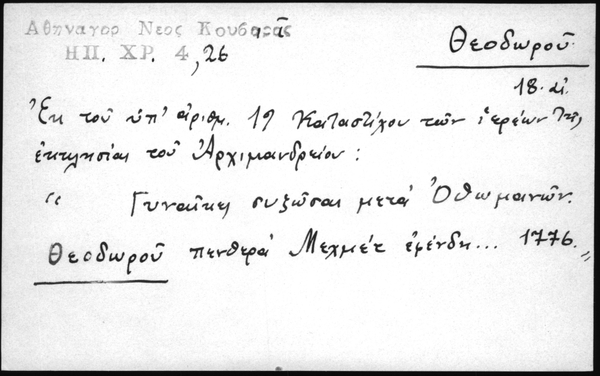 Αθηναγορ Νεος Κουβαρᾶς
ΗΠ. ΧΡ. 4, 26
Θεοδωροῦ
18. αἰ.
Ἐκ τοῦ ὑπ' ἀριθμ. 19 Καταστίχου τῶν ἱερέων τῆς
ἐκκλησίας τοῦ Ἀρχιμανδρείου :
“ Γυναῖκες συζῶσαι μετὰ Ὀθωμανῶν.
Θεοδωροῦ πενθερὰ Μεχμὲτ ἐφένδη... 1776. „